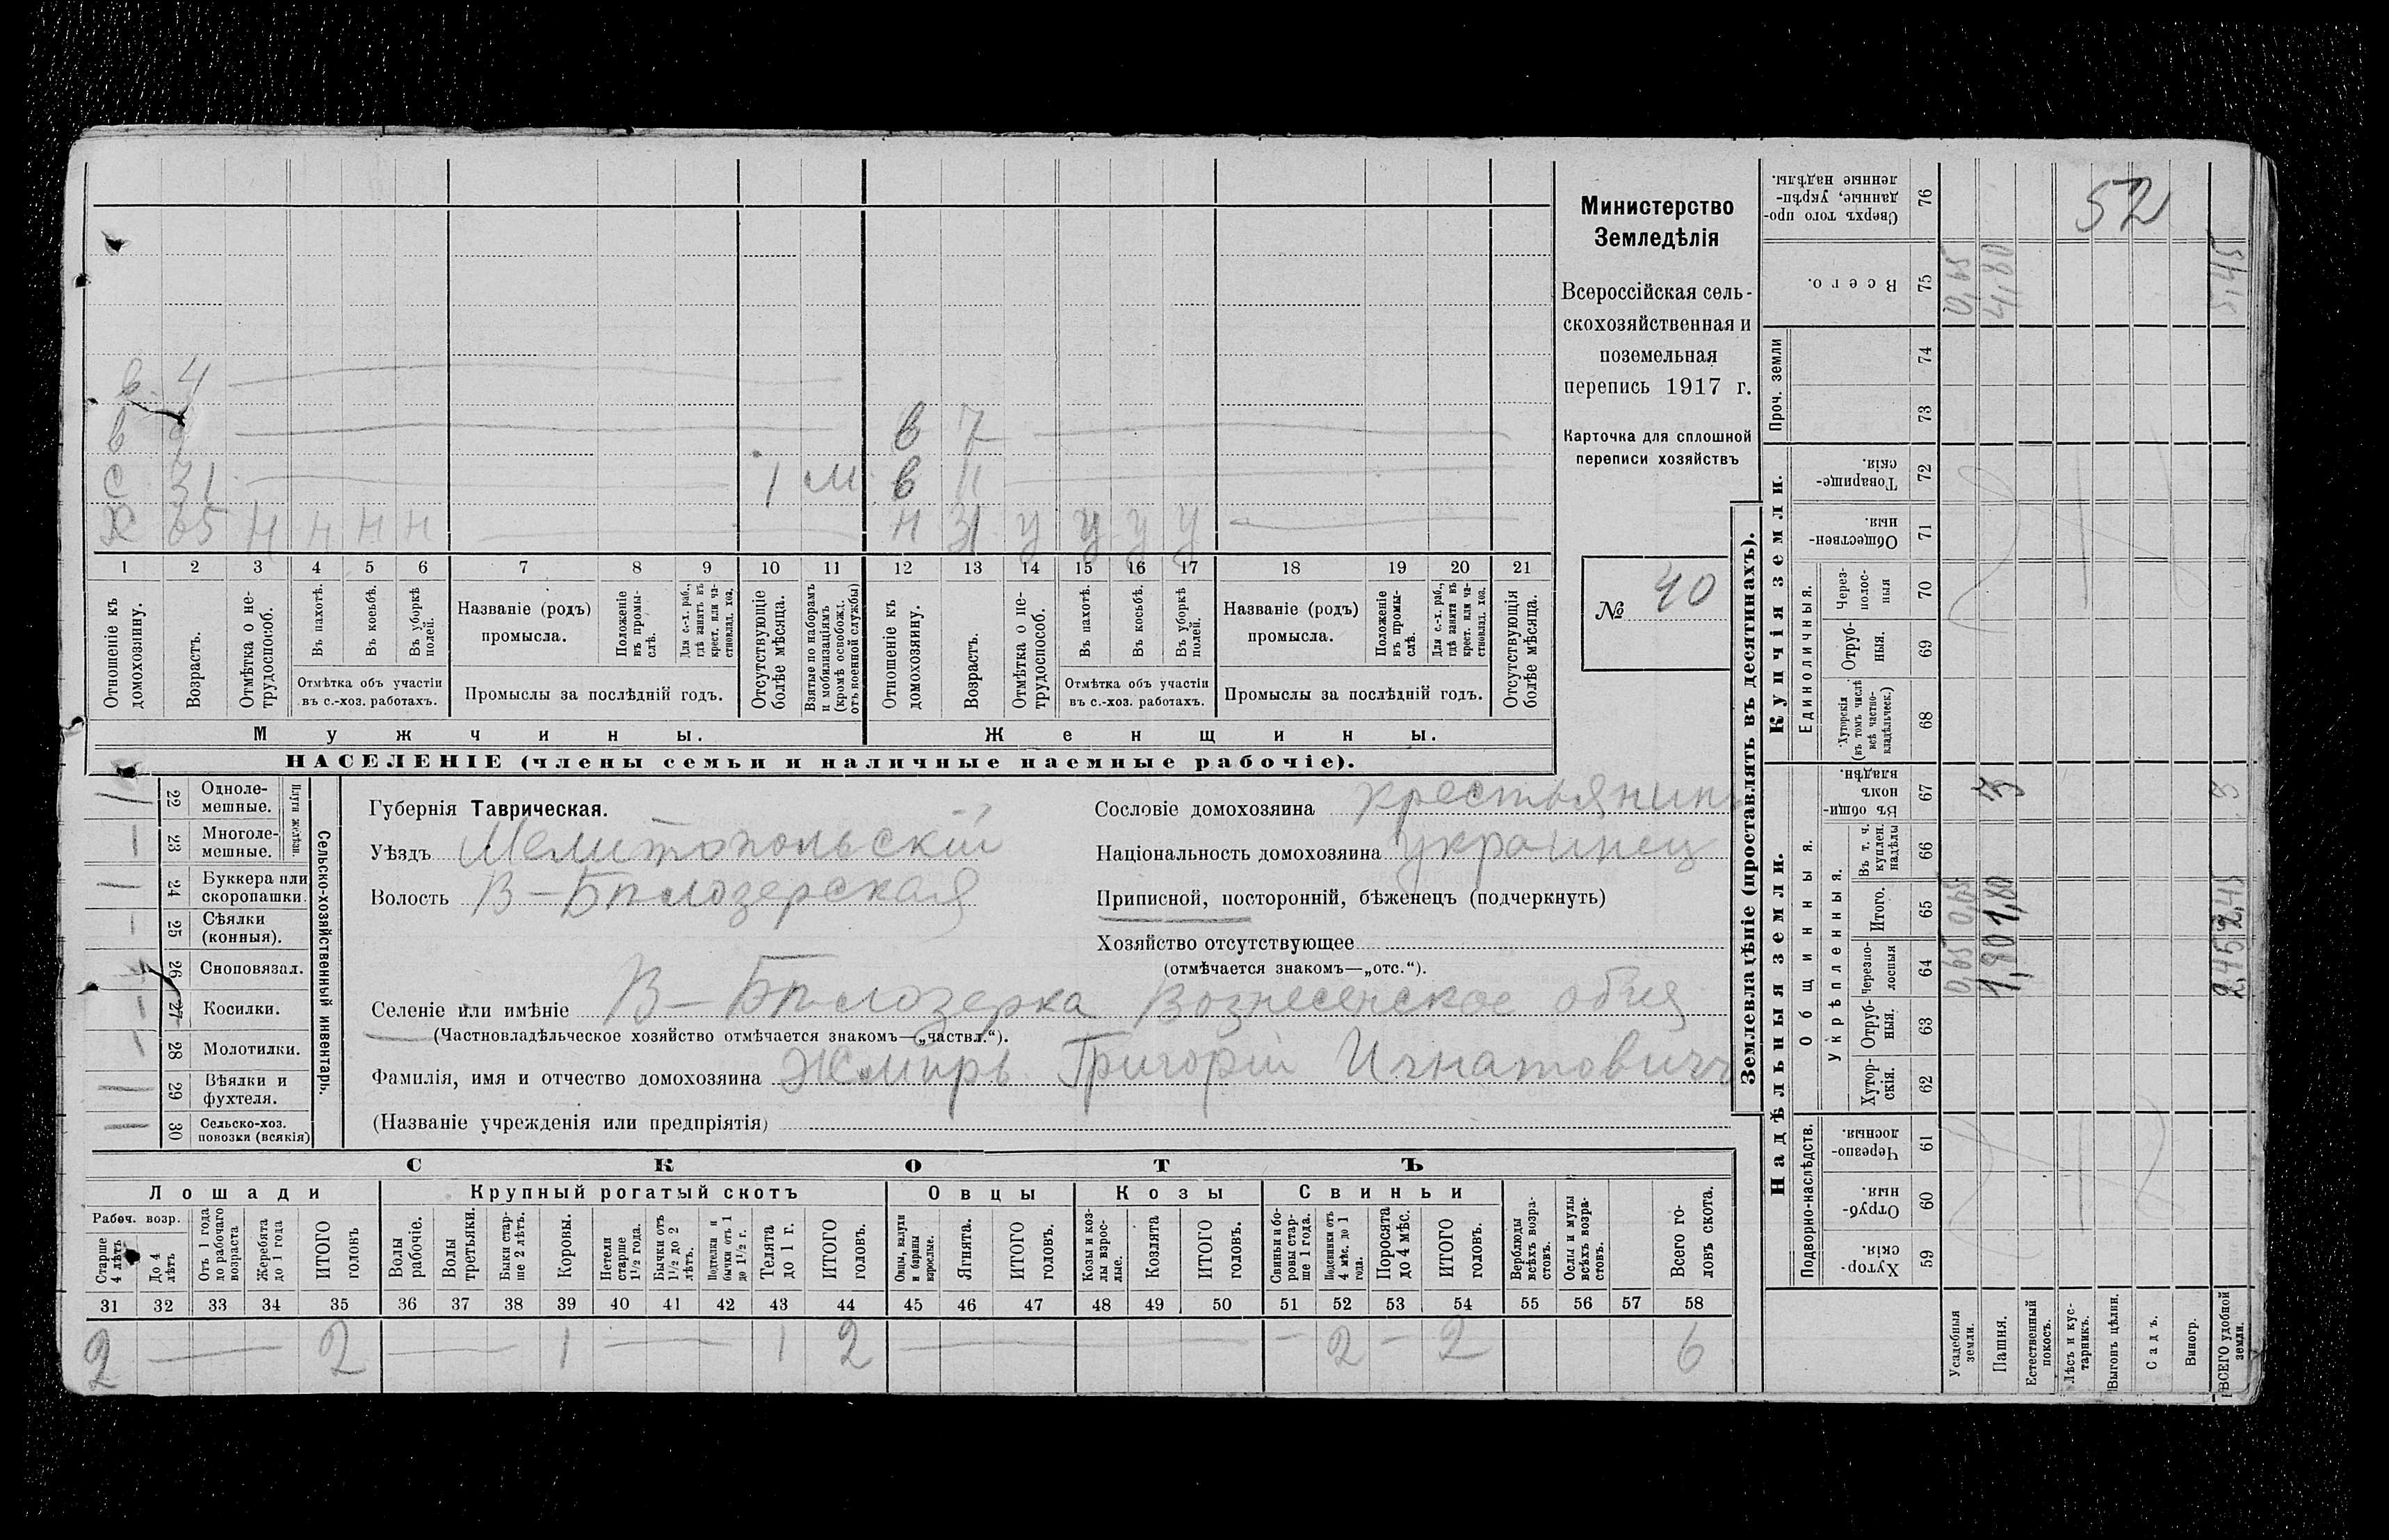 Министерство
Земледѣлія
Всероссійская сель-
скохозяйственная и
поземельная
перепись 1917 г.
Карточка для сплошной
переписи хозяйствъ
№ 40
52
в 4
в 9 в 7
с 31 1 м в 11
Х 65 н н н н н 31 у у у у
1 2 3 4 5 6 7 8 9 10 11 12 13 14 15 16 17 18 19 20 21
Отношеніе къ домохозяину.
Возрастъ.
Отмѣтка о не-трудоспособ.
Въ пахотѣ.
Въ косьбѣ.
Въ уборкѣ полей.
Отмѣтка объ участіи
въ с.-хоз. работахъ.
Названіе (родъ)
промысла.
Положеніе въ промы-слѣ.
Для с.-х. раб., гдѣ занятъ въ крест. или ча-стновлад. хоз.
Промыслы за послѣдній годъ.
Отсутствующіе болѣе мѣсяца.
Взятые по наборамъ и мобилизаціямъ (кромѣ освобожд. отъ военной службы)
Отношеніе къ домохозяину.
Возрастъ.
Отмѣтка о не-трудоспособ.
Въ пахотѣ.
Въ косьбѣ.
Въ уборкѣ полей.
Отмѣтка объ участіи
въ с.-хоз. работахъ.
Названіе (родъ)
промысла.
Положеніе въ промы-слѣ.
Для с.-х. раб., гдѣ занята въ крест. или ча-стновлад. хоз.
Промыслы за послѣдній годъ.
Отсутствующія болѣе мѣсяца.
Мужчины. Женщины.
НАСЕЛЕНІЕ (члены семьи и наличные наемные рабочіе).
22 Одноле-мешные.
23 Многоле-мешные.
Плуги желѣзн.
24 Буккера или скоропашки.
25 Сѣялки (конныя).
26 Сноповязал.
27 Косилки.
28 Молотилки.
29 Вѣялки и фухтеля.
30 Сельско-хоз. повозки (всякія)
Сельско-хозяйственный инвентарь.
Губернія Таврическая.
Уѣздъ Мелитопольскій
Волость В-Бѣлозерская
Сословіе домохозяина крестьянинъ
Національность домохозяина украинец
Приписной, посторонній, бѣженецъ (подчеркнуть)
Хозяйство отсутствующее
(отмѣчается знакомъ—„отс.“).
Селеніе или имѣніе В-Бѣлозерка Вознесенское общ
(Частновладѣльческое хозяйство отмѣчается знакомъ—„частвл.“).
Фамилія, имя и отчество домохозяина Жмирь Григорій Игнатовичъ
(Названіе учрежденія или предпріятія)
СКОТЪ
Лошади Крупный рогатый скотъ Овцы Козы Свиньи
Рабоч. возр.
Старше 4 лѣтъ
До 4 лѣтъ
Отъ 1 года до рабочаго возраста
Жеребята до 1 года
ИТОГО головъ
Волы рабочіе.
Волы третьяки.
Быки стар-ше 2 лѣтъ.
Коровы.
Нетели старше 1½ года.
Бычки отъ 1½ до 2 лѣтъ.
Подтелки и бычки отъ 1 до 1½ г.
Телята до 1 г.
ИТОГО головъ.
Овцы, валухи и бараны взрослые.
Ягнята.
ИТОГО головъ.
Козы и коз-лы взрос-лые.
Козлята
ИТОГО головъ.
Свиньи и бо-ровы стар-ше 1 года.
Подсвинки отъ 4 мѣс. до 1 года.
Поросята до 4 мѣс.
ИТОГО головъ.
Верблюды всѣхъ возра-стовъ.
Ослы и мулы всѣхъ возра-стовъ.
Всего го-ловъ скота.
31 32 33 34 35 36 37 38 39 40 41 42 43 44 45 46 47 48 49 50 51 52 53 54 55 56 57 58
2 — 2 — 1 — 1 2 — — 2 — 2 6
Землевладѣніе (проставлять въ десятинахъ).
Надѣльныя земли. Купчія земли. Проч. земли
Подворно-наслѣдств. Общинныя. Единоличныя.
Укрѣпленныя.
59 Хутор-скія.
60 Отруб-ныя.
61 Черезпо-лосныя.
62 Хутор-скія.
63 Отруб-ныя.
64 Черезпо-лосныя
65 Итого.
66 Въ т. ч. куплен. надѣлы
67 Въ общин-номъ владѣн.
68 Хуторскія (въ томъ числѣ всѣ частно-владѣльческ.)
69 Отруб-ныя.
70 Через-полос-ныя
71 Обществен-ныя.
72 Товарище-скія.
73
74
75 Всего.
76 Сверхъ того про-данные, укрѣп-ленные надѣлы.
Усадебныя земли. 0,65 0,65 0,65
Пашня. 1,80 1,80 3 4,80
Естественный покосъ.
Лѣсъ и кус-тарникъ.
Выгонъ цѣлин.
Садъ.
Виногр.
ВСЕГО удобной земли. 2,45 2,45 3 5,45